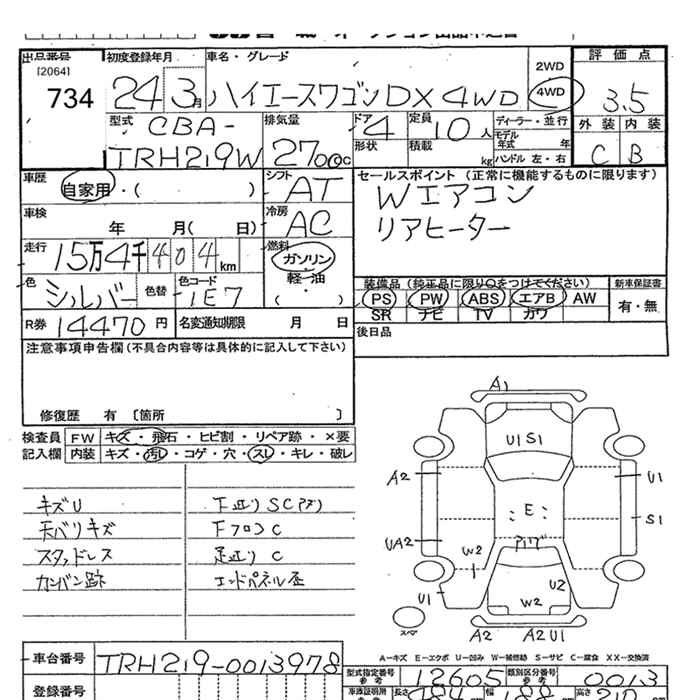 出品番号 初度登録年月 車名・グレード 2WD 評価点
[2064]
734 24 3月 ハイエースワゴンDX 4WD 4WD 3.5
型式 排気量 ドア 定員 ディーラー・並行 外装 内装
CBA- 4 10人 モデル年式 年
TRH219W 2700cc 形状 積載 kg ハンドル 左・右 C B
車歴 シフト セールスポイント (正常に機能するものに限ります)
自家用・( ) AT Wエアコン
車検 冷房 リアヒーター
年 月( 日) AC
走行 燃料
15万4千404km ガソリン
色 色替 色コード 軽・油 装備品 (純正品に限り○をつけてください) 新車保証書
シルバー 1E7 ( ) PS PW ABS エアB AW 有・無
SR ナビ TV カワ
R券 14470円 名変通知期限 月 日 後日品
注意事項申告欄(不具合内容等は具体的に記入して下さい)
修復歴 有 〔箇所 〕
検査員 FW キズ・飛石・ヒビ割・リペア跡・×要
記入欄 内装 キズ・汚レ・コゲ・穴・スレ・キレ・破レ
A1
U1 S1
A2 U1
E S1
UA2
W2
U1 U2
W2
スペア
A2 A2U1
キズU
天バリキズ
スタッドレス
カンバン跡
下廻りSC
下フロンC
足廻りC
A─キズ E─エクボ U─凹み W─補修跡 S─サビ C─腐食 XX─交換済
車台番号 TRH219-0013978 型式指定番号 参考 12605 類別区分番号 参考 0013
登録番号 車庫証明用 長さ 幅 高さ